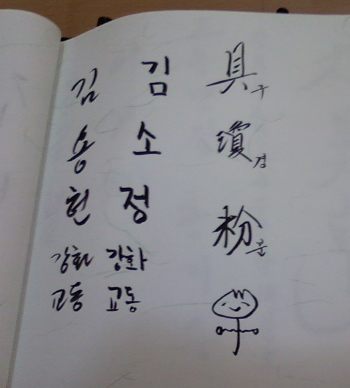 김용현
강화
교동
김소정
강화
교동
具구
瓊경
粉분